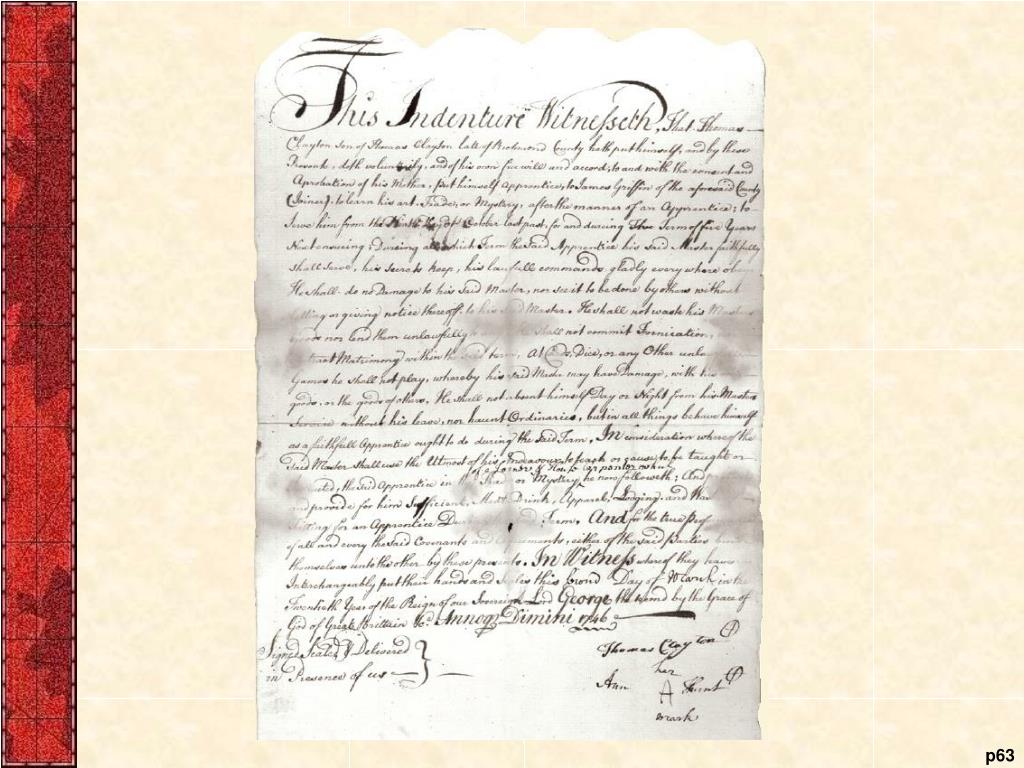 This Indenture Witnesseth, That Thomas
Clayton son of Thomas Clayton late of Richmond County hath put himself, and by these
Presents, doth voluntarily, and of his own free will and accord, to and with the consent and
Aprobation of his Mother, put himself apprentice, to James Griffin of the aforesaid County
(Joiner), to learn his art, Trade, or Mystery, after the manner of an Apprentice; to
Serve him from the Day of October last past, for and during The Term of five Years
Next ensuing; During all which Term the said Apprentice his said Master faithfully
shall serve, his secrets keep, his lawfull commands gladly every where obey
He shall do no Damage to his said Master, nor see it to be done by others without
letting or giving notice thereof to his said Master. He shall not waste his Masters
goods nor lend them unlawfully to shall not commit Fornication,
Matrimony within the said term, At Cards, Dice, or any Other
Games he shall not play, whereby his said Master may have Damage, with his
goods, or the goods of others, He shall not absent himself Day or Night from his Masters
Service without his leave, nor haunt Ordinaries, but in all things behave himself
as a faithfull Apprentice ought to do during the said Term, In consideration whereof the
Said Master shall use the Utmost of his Endeavour, to teach or cause to be taught or
of a Joiner & House carpenter
the said Apprentice in the Trade or Mystery, he now followeth; And
and provide for him Sufficient, Meat, Drink, Apparel, Lodging, and
fitting for an Apprentice Term, And for the true
of all and every the said Covenants and Agreements, either of the said Parties
themselves unto the other by these presents. In Witness whereof they have
Interchangeably put their hands and Seales this Day of March in the
Twentieth Year of the Reign of our Sovereign Lord George the second by the Grace of
God of Great Brittain &c. Annoq Dimini 1746
Signed Sealed & Delivered
in Presence of us
Thomas Clayton
her
Ann A Hunt
mark
p63